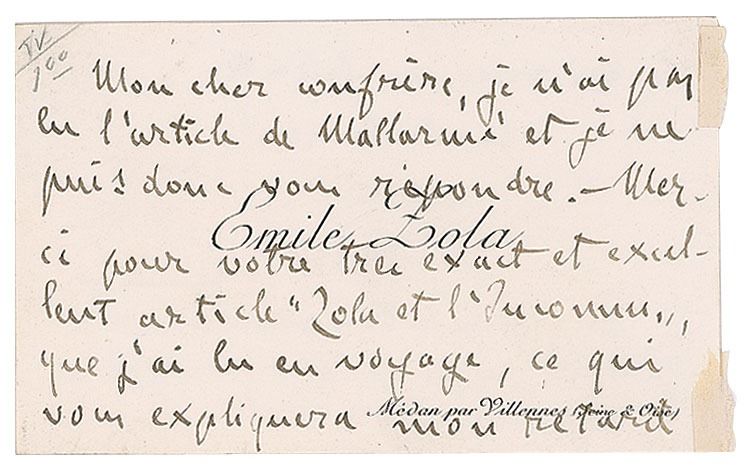 TV
100
Mon cher confrère, je n'ai pas
lu l'article de Mallarmé et je ne
puis donc vous répondre. — Mer-
Emile Zola
ci pour votre très exact et excel-
lent article "Zola et l'Inconnu",
que j'ai lu en voyage, ce qui
Médan par Villennes (Seine & Oise)
vous expliquera mon retard